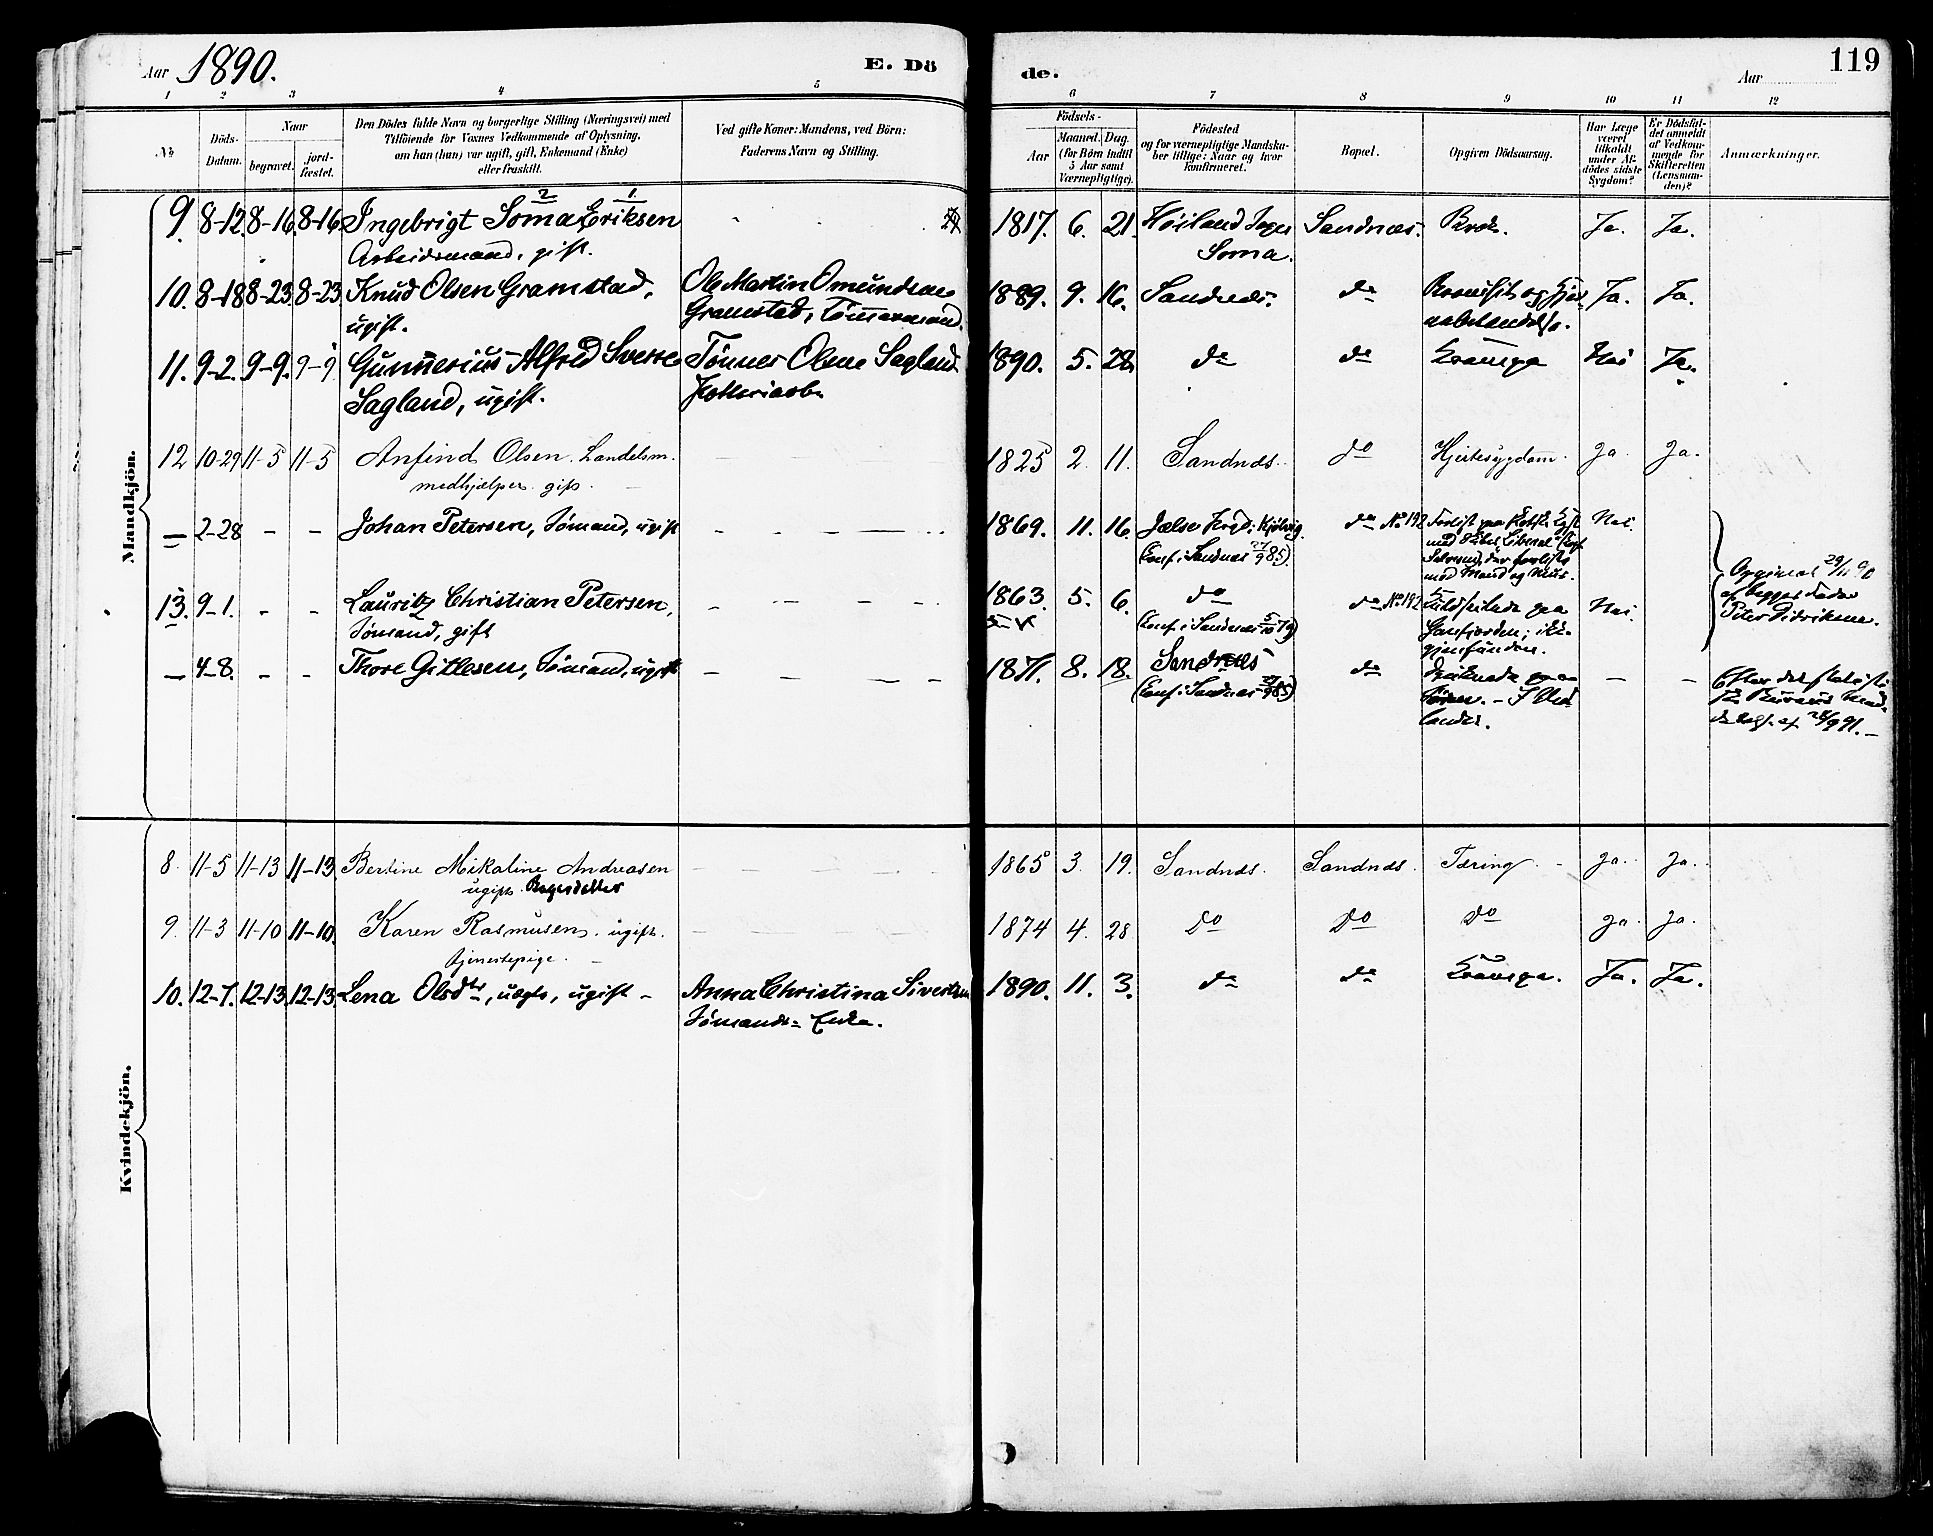 Aar 1890. E. Dö
de. Aar 119
1 2 3 4 5 6 7 8 9 10 11 12
№
Döds-
Datum.
Naar
begravet.
jord-
fæstet.
Den Dödes fulde Navn og borgerlige Stilling (Næringsvei) med
Tilföiende for Voxnes Vedkommende af Oplysning,
om han (hun) var ugift, gift, Enkemand (Enke)
eller fraskilt.
Ved gifte Koner: Mandens, ved Börn:
Faderens Navn og Stilling.
Födsels-
Aar
Maaned. Dag.
(for Börn indtil
5 Aar samt
Værnepligtige).
Födested
og for værnepligtige Mandska-
ber tillige: Naar og hvor
konfirmeret.
Bopæl.
Opgiven Dödsaarsag.
Har Læge
været
tilkaldt
under Af-
dödes sidste
Sygdom?
Er Dödsfal-
det anmeldt
af Vedkom-
mende for
Skifteretten
(Lensman-
den)?
Anmærkninger.
Mandkjön.
2 1
9. 8-12. 8-16. 8-16. Ingebrigt Soma Eriksen 1817. 6. 21. Höiland Sogn Sandnæs. Brok. Ja. Ja.
Arbeidsmand, gift. Soma.
10. 8-18 8-23 8-23 Knud Olsen Gramstad, Ole Martin Omundsen 1889. 9. 16. Sandnæs. do Ja. Ja.
ugift. Gramstad, Tömmermand.
11. 9-2. 9-9. 9-9 Gunnerius Alfred Sverre Tönnes Olsen Sagland 1890. 5. 28. do do Krampe Nei Ja.
Sagland, ugift.
12 10-29 11-5 11-5 Anfind Olsen. 1825 2 11. Sandnæs. do Hjertesygdom. Ja. Ja.
medhjælper. gift.
— 2-28 - - Johan Petersen, Sömand, ugift 1869. 11. 16. Jælse do No 192 Nei
(Conf. i Sandnæs 27/9 85).
med Mand og Mus.
13. 9-1. - - Lauritz Christian Petersen, 1863. 5. 6. do do No 192 Nei.
Sömand, gift (Conf. i Sandnæs 5/10 79)
Ganfjorden; ikke
gjenfunden.
Opgivet 29/11 90
af begges Fader
Peter Didriksen.
— 4-8. - - Thore Gitlesen, Sömand, ugift 1871. 8. 18. Sandnæs do Druknede paa — —
(Conf. i Sandnæs 27/9 85)
Efter det statisti-
ske Bureaus Med-
Kvindekjön.
8. 11-5 11-13 11-13 Bertine Mikaline Andreasen 1865 3. 19. Sandnæs. Sandnæs. Tæring. Ja. Ja.
ugift.
9. 11-3 11-10 11-10. Karen Rasmusen. ugift. 1874 4. 28 do do do Ja. Ja.
Tjenestepige.
10. 12-7. 12-13. 12-13. Lena Olsdtr, uægte, ugift - Anna Christina Sivertsen 1890. 11. 3. do do Krampe. Ja. Ja.
Sömands- Enke.